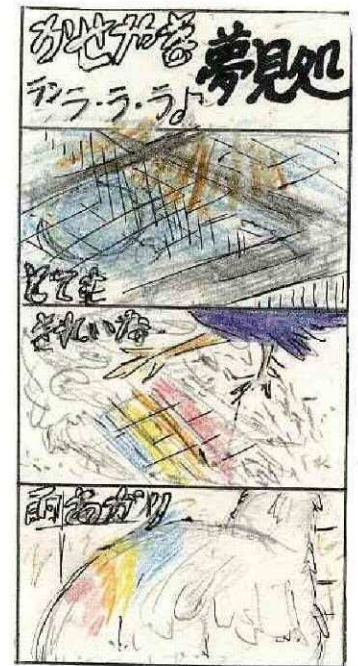 かせなかな
夢見処
ランラ・ラ・ラ♪
とても
きれいな
雨あがり